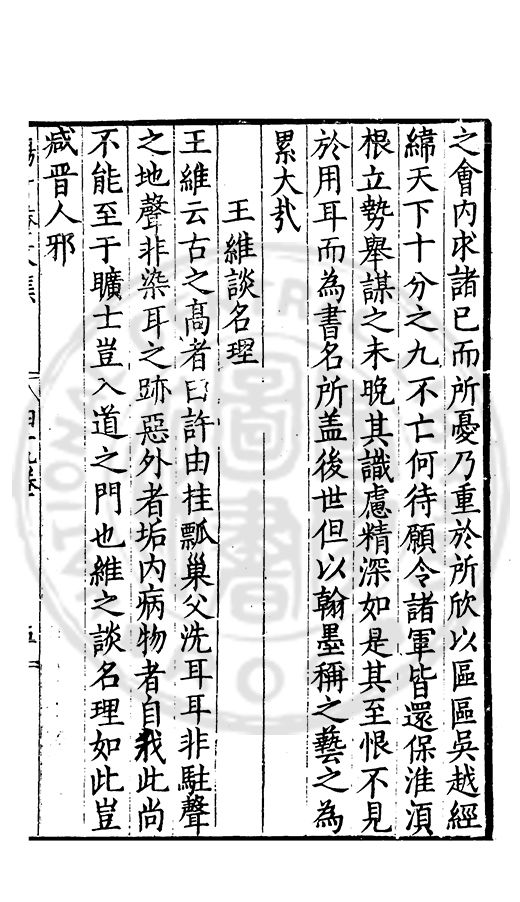 之會内求諸已而所憂乃重於所欣以區區吳越經
緯天下十分之九不亡何待願令諸軍皆還保淮湏
根立勢舉謀之未晚其識慮精深如是其至恨不見
於用耳而為書名所盖後世但以翰墨稱之藝之為
累大㢤
王維談名理
王維云古之髙者曰許由挂瓢巢父洗耳耳非駐聲
之地聲非染耳之跡惡外者垢内病物者自我此尚
不能至于曠士豈入道之門也維之談名理如此豈
减晋人邪